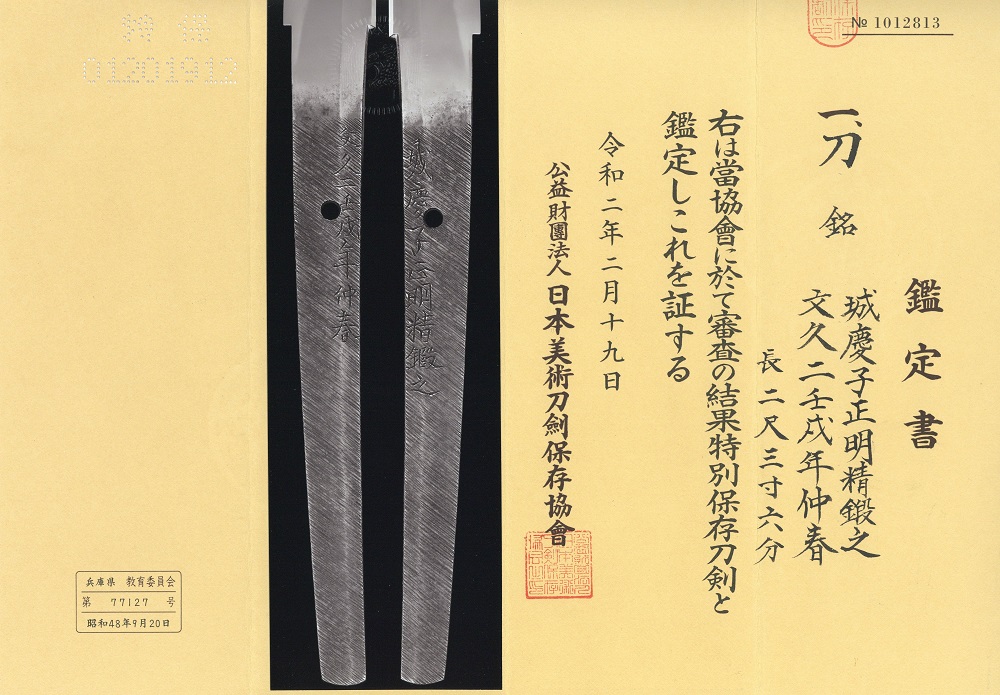 № 1012813
鑑定書
一、刀 銘 城慶子正明精鍛之
文久二壬戌年仲春
長 二尺三寸六分
右は當協會に於て審査の結果特別保存刀剣と
鑑定しこれを証する
令和二年二月十九日
公益財團法人 日本美術刀劍保存協會
城慶子正明精鍛之
文久二壬戌年仲春
特保
01201912
兵庫県 教育委員会
第 77127 号
昭和48年9月20日